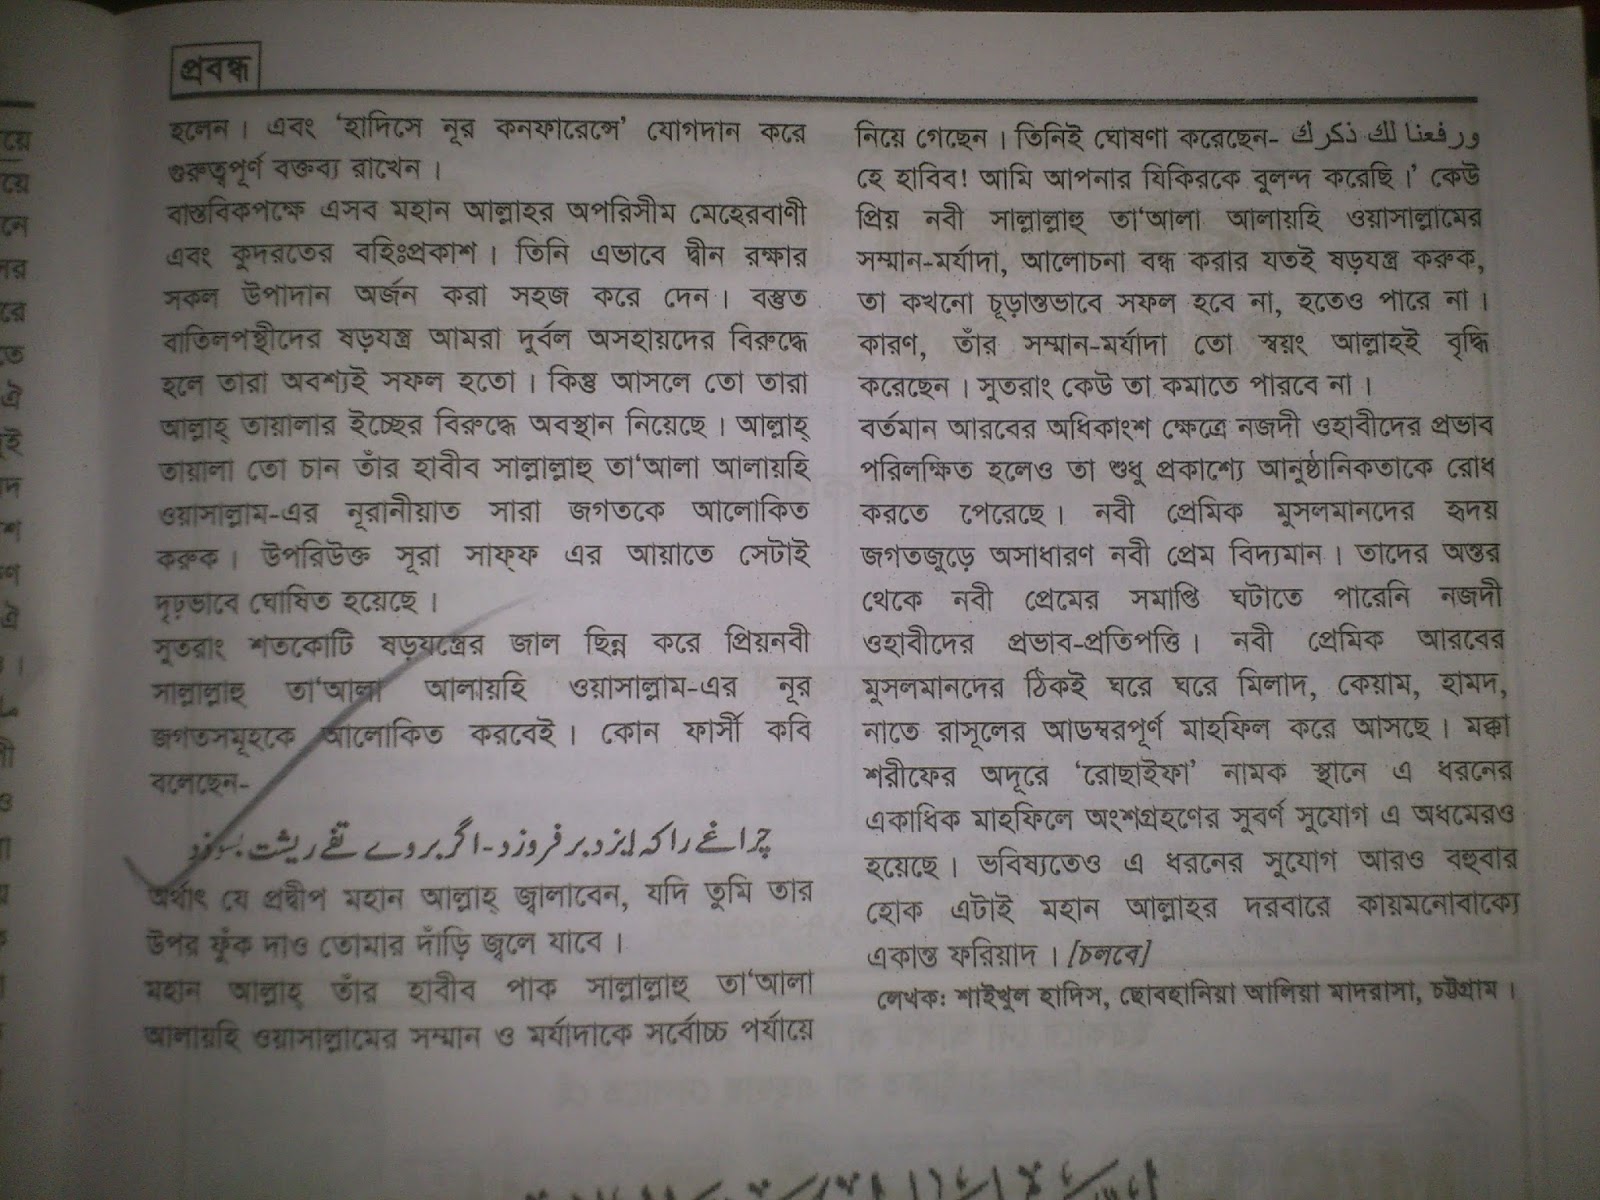 প্রবন্ধ
হলেন। এবং ‘হাদিসে নূর কনফারেন্সে’ যোগদান করে
গুরুত্বপূর্ণ বক্তব্য রাখেন।
বাস্তবিকপক্ষে এসব মহান আল্লাহর অপরিসীম মেহেরবাণী
এবং কুদরতের বহিঃপ্রকাশ। তিনি এভাবে দ্বীন রক্ষার
সকল উপাদান অর্জন করা সহজ করে দেন। বস্তুত
বাতিলপন্থীদের ষড়যন্ত্র আমরা দুর্বল অসহায়দের বিরুদ্ধে
হলে তারা অবশ্যই সফল হতো। কিন্তু আসলে তো তারা
আল্লাহ্ তায়ালার ইচ্ছের বিরুদ্ধে অবস্থান নিয়েছে। আল্লাহ্
তায়ালা তো চান তাঁর হাবীব সাল্লাল্লাহু তা‘আলা আলায়হি
ওয়াসাল্লাম-এর নূরানীয়াত সারা জগতকে আলোকিত
করুক। উপরিউক্ত সূরা সাফ্ফ এর আয়াতে সেটাই
দৃঢ়ভাবে ঘোষিত হয়েছে।
সুতরাং শতকোটি ষড়যন্ত্রের জাল ছিন্ন করে প্রিয়নবী
সাল্লাল্লাহু তা‘আলা আলায়হি ওয়াসাল্লাম-এর নূর
জগতসমূহকে আলোকিত করবেই। কোন ফার্সী কবি
বলেছেন-
چراغے را کہ ایزد بر فروزد - اگر بروے تفے ریشت بسوزد
অর্থাৎ যে প্রদ্বীপ মহান আল্লাহ্ জ্বালাবেন, যদি তুমি তার
উপর ফুঁক দাও তোমার দাঁড়ি জ্বলে যাবে।
মহান আল্লাহ্ তাঁর হাবীব পাক সাল্লাল্লাহু তা‘আলা
আলায়হি ওয়াসাল্লামের সম্মান ও মর্যাদাকে সর্বোচ্চ পর্যায়ে
নিয়ে গেছেন। তিনিই ঘোষণা করেছেন- ورفعنا لك ذكرك
হে হাবিব! আমি আপনার যিকিরকে বুলন্দ করেছি।’ কেউ
প্রিয় নবী সাল্লাল্লাহু তা‘আলা আলায়হি ওয়াসাল্লামের
সম্মান-মর্যাদা, আলোচনা বন্ধ করার যতই ষড়যন্ত্র করুক,
তা কখনো চূড়ান্তভাবে সফল হবে না, হতেও পারে না।
কারণ, তাঁর সম্মান-মর্যাদা তো স্বয়ং আল্লাহই বৃদ্ধি
করেছেন। সুতরাং কেউ তা কমাতে পারবে না।
বর্তমান আরবের অধিকাংশ ক্ষেত্রে নজদী ওহাবীদের প্রভাব
পরিলক্ষিত হলেও তা শুধু প্রকাশ্যে আনুষ্ঠানিকতাকে রোধ
করতে পেরেছে। নবী প্রেমিক মুসলমানদের হৃদয়
জগতজুড়ে অসাধারণ নবী প্রেম বিদ্যমান। তাদের অন্তর
থেকে নবী প্রেমের সমাপ্তি ঘটাতে পারেনি নজদী
ওহাবীদের প্রভাব-প্রতিপত্তি। নবী প্রেমিক আরবের
মুসলমানদের ঠিকই ঘরে ঘরে মিলাদ, কেয়াম, হামদ,
নাতে রাসূলের আড়ম্বরপূর্ণ মাহফিল করে আসছে। মক্কা
শরীফের অদূরে ‘রোছাইফা’ নামক স্থানে এ ধরনের
একাধিক মাহফিলে অংশগ্রহণের সুবর্ণ সুযোগ এ অধমেরও
হয়েছে। ভবিষ্যতেও এ ধরনের সুযোগ আরও বহুবার
হোক এটাই মহান আল্লাহর দরবারে কায়মনোবাক্যে
একান্ত ফরিয়াদ। [চলবে]
লেখক: শাইখুল হাদিস, ছোবহানিয়া আলিয়া মাদরাসা, চট্টগ্রাম।